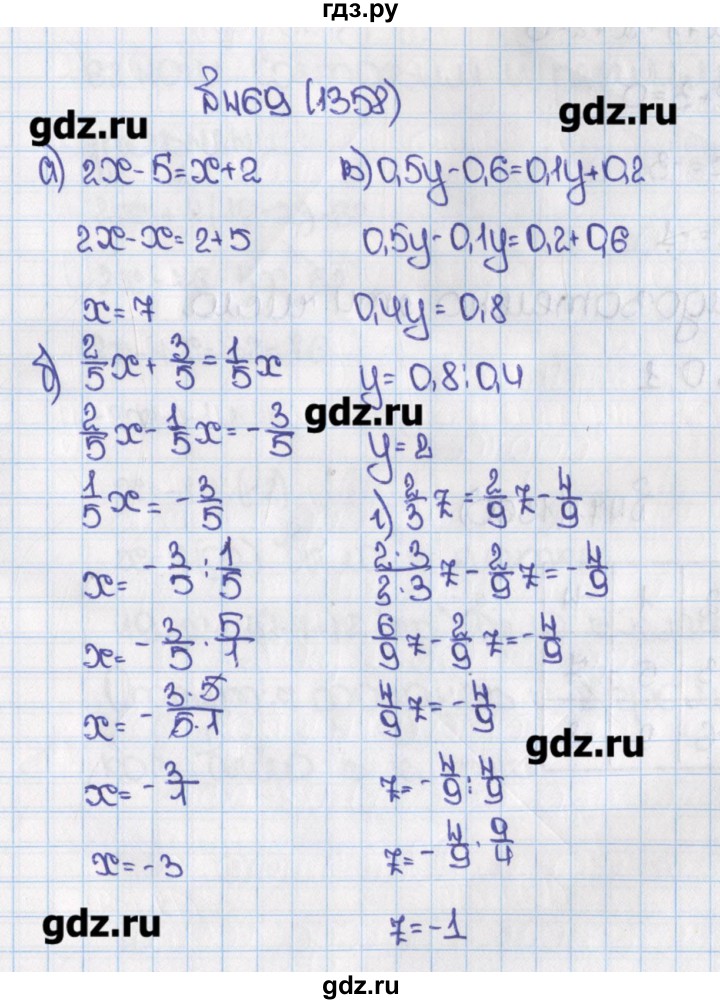 гдз.ру
№469 (1358)
gdz.ru
gdz.ru
а) 2x - 5 = x + 2
2x - x = 2 + 5
x = 7
б) 2/5 x + 3/5 = 1/5 x
2/5 x - 1/5 x = - 3/5
1/5 x = - 3/5
x = - 3/5 : 1/5
x = - 3/5 · 5/1
x = - 3·5/5·1
x = - 3/1
x = -3
в) 0,5y - 0,6 = 0,1y + 0,2
0,5y - 0,1y = 0,2 + 0,6
0,4y = 0,8
y = 0,8 : 0,4
gdz.ru
y = 2
г) 2/3 z = 2/9 z - 4/9
2·3/3·3 z - 2/9 z = - 4/9
6/9 z - 2/9 z = - 4/9
4/9 z = - 4/9
gdz.ru
z = - 4/9 : 4/9
z = - 4/9 · 9/4
z = -1
gdz.ru
gdz.ru